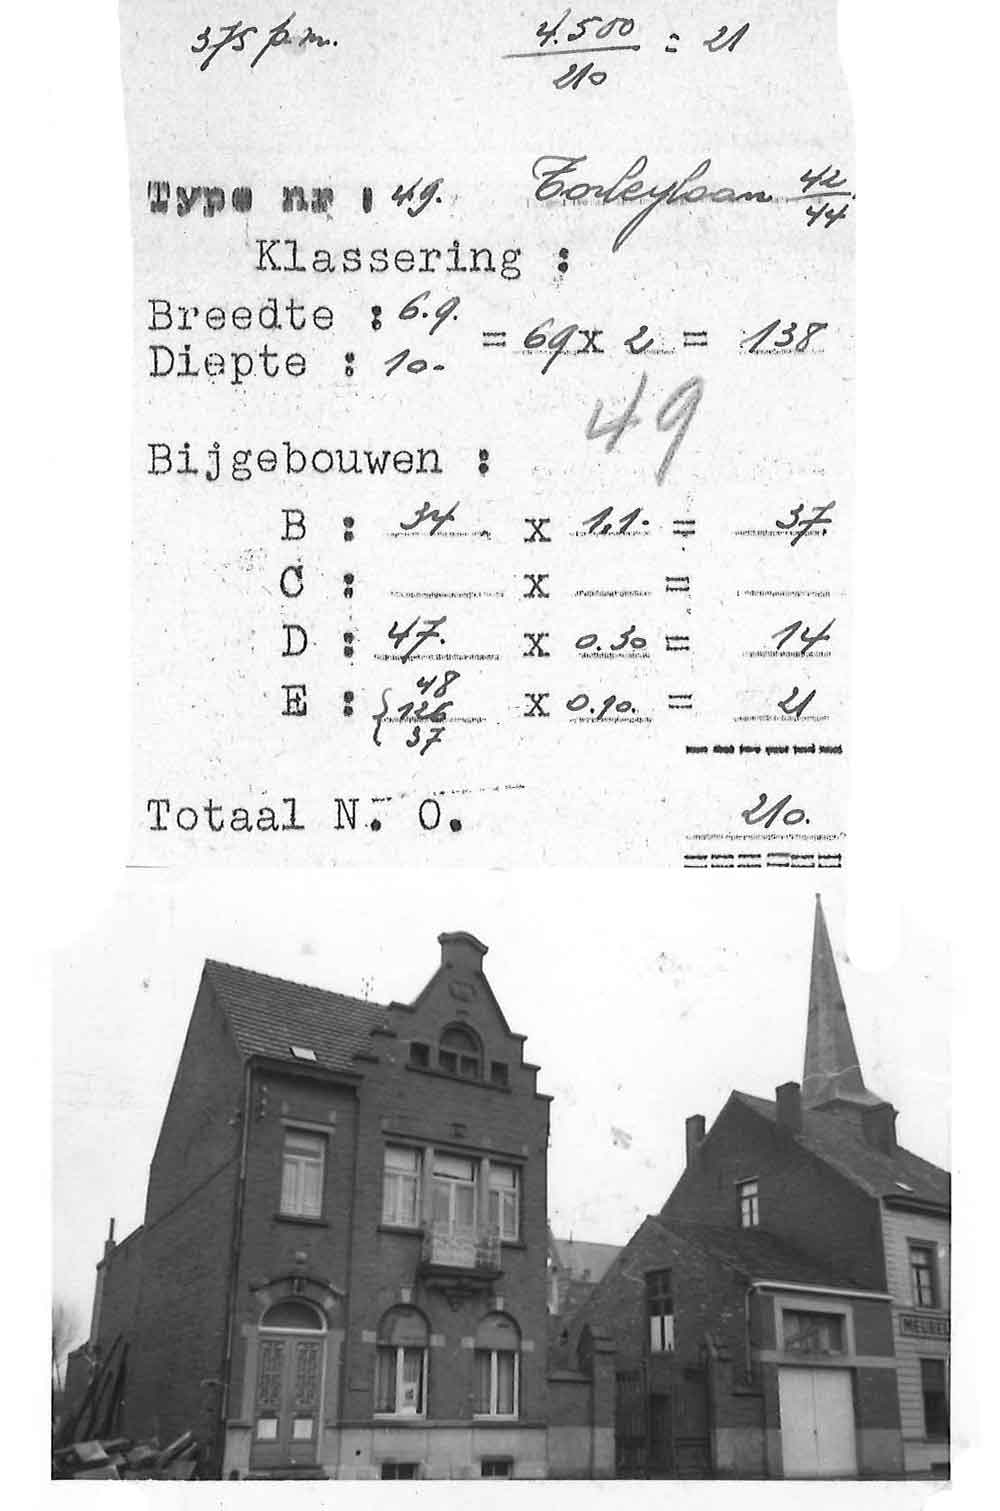 375 p.m. 4.500 / 210 = 21
Type nr : 49. Torleylaan 42 / 44
Klassering :
Breedte : 6.9.
= 69 x 2 = 138
Diepte : 10.
49
Bijgebouwen :
B : 34 x 1,1. = 37.
C : x =
D : 47. x 0.30 = 14
E : { 48 126 37 x 0.10. = 21
Totaal N. O. 210.
MEUBEL